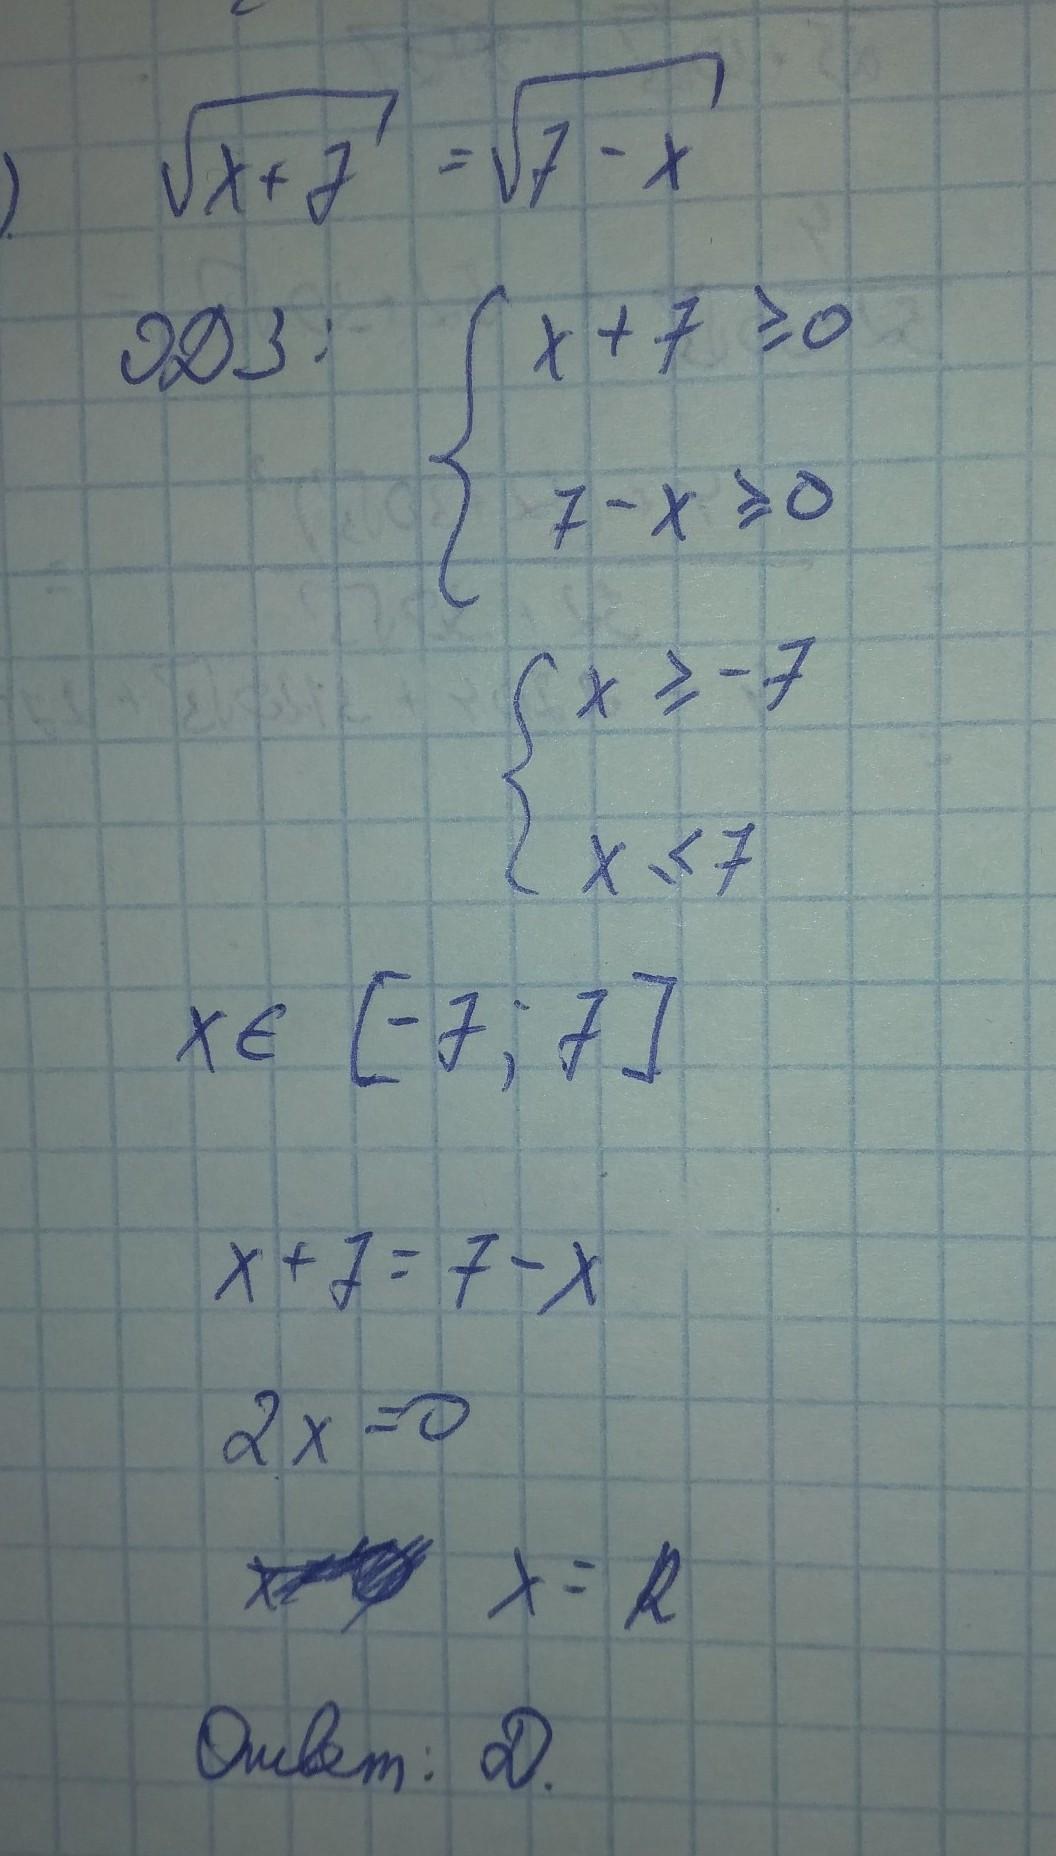 ) √(x+7) = √(7-x)
ОДЗ: { x+7 ≥ 0
7-x ≥ 0
{ x ≥ -7
x ≤ 7
x ∈ [-7; 7]
x+7=7-x
2x=0
x = R
Ответ: D.